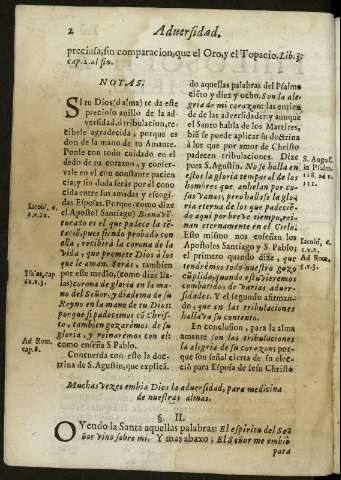 2 Adversidad.
preciosa, sin comparacion, que el Oro, y el Topacio. Lib. 3.
cap. 2. al fin.
NOTAS.
SI tu Dios (ò alma) te da este
precioso anillo de la ad-
versidad, ò tribulacion, re-
cibele agradecida, porque es
don de la mano de tu Amante.
Ponle con todo cuidado en el
dedo de tu coraçon, y conser-
vale en el con constante pacien
cia; y sin duda seràs por èl cono
cida entre sus amadas y escogi-
das Esposas. Porque (como dize
el Apostol Santiago) Bienavẽ-
turado es el que padece la ten-
tacion, pues siendo probado con
ella, recibirà la corona de la
Vida, que promete Dios à los
que le aman. Seràs, tambien
por este medio, (como dize Isa-
ias) corona de gloria en la ma-
no del Señor, y diadema de su
Reyno en la mano de tu Dios:
porque si padecemos cõ Chris-
to, tambien gozarèmos de su
gloria, y reinarèmos con el:
como enseña S. Pablo.
Concuerda con esto la doc-
trina de S. Agustin, que explicã-
Iacobi, c.
1. v. 12.
Isaias, cap
62. v. 3.
Ad Rom.
cap. 8.
do aquellas palabras del Psalmo
ciẽto y diez y ocho. Son la ale-
gria de mi corazon: las entien-
de de las adversidades: y aunque
el Santo habla de los Martires,
biẽ se puede aplicar su doctrina
à los que por amor de Christo
padecen tribulaciones. Dize
pues S. Agustin. No se halla en
estos la gloria temporal de los
hombres que anhelan por co-
sas vanas; pero hallase la glo-
ria eterna de los que padeciẽ-
do aqui por breve tiempo, rei-
nan eternamente en el Cielo.
Esto mismo nos enseñan los
Apostoles Santiago y S. Pablo:
el primero quando dize, que
tendrèmos todo nuestro gozo
cumplido, quando estuvieremos
combatidos de varias adver-
sidades. Y el segundo afirman-
do, que en las tribulaciones
hallava su contento.
En conclusion, para la alma
amante son las tribulaciones
la alegria de su corazon; por-
que son señal cierta de su elec-
ciò para Esposa de Iesu Christo
S. August.
in Psalm.
118. ad v.
111.
Iacobi, c.
1. v. 2.
Ad Rom.
5. v. 3.
Muchas vezes embia Dios la adversidad, para medicina
de nuestras almas.
§. II.
OYendo la Santa aquellas palabras: El espiritu del Se-
ñor vino sobre mi. Y mas abaxo; El Señor me embiò
para